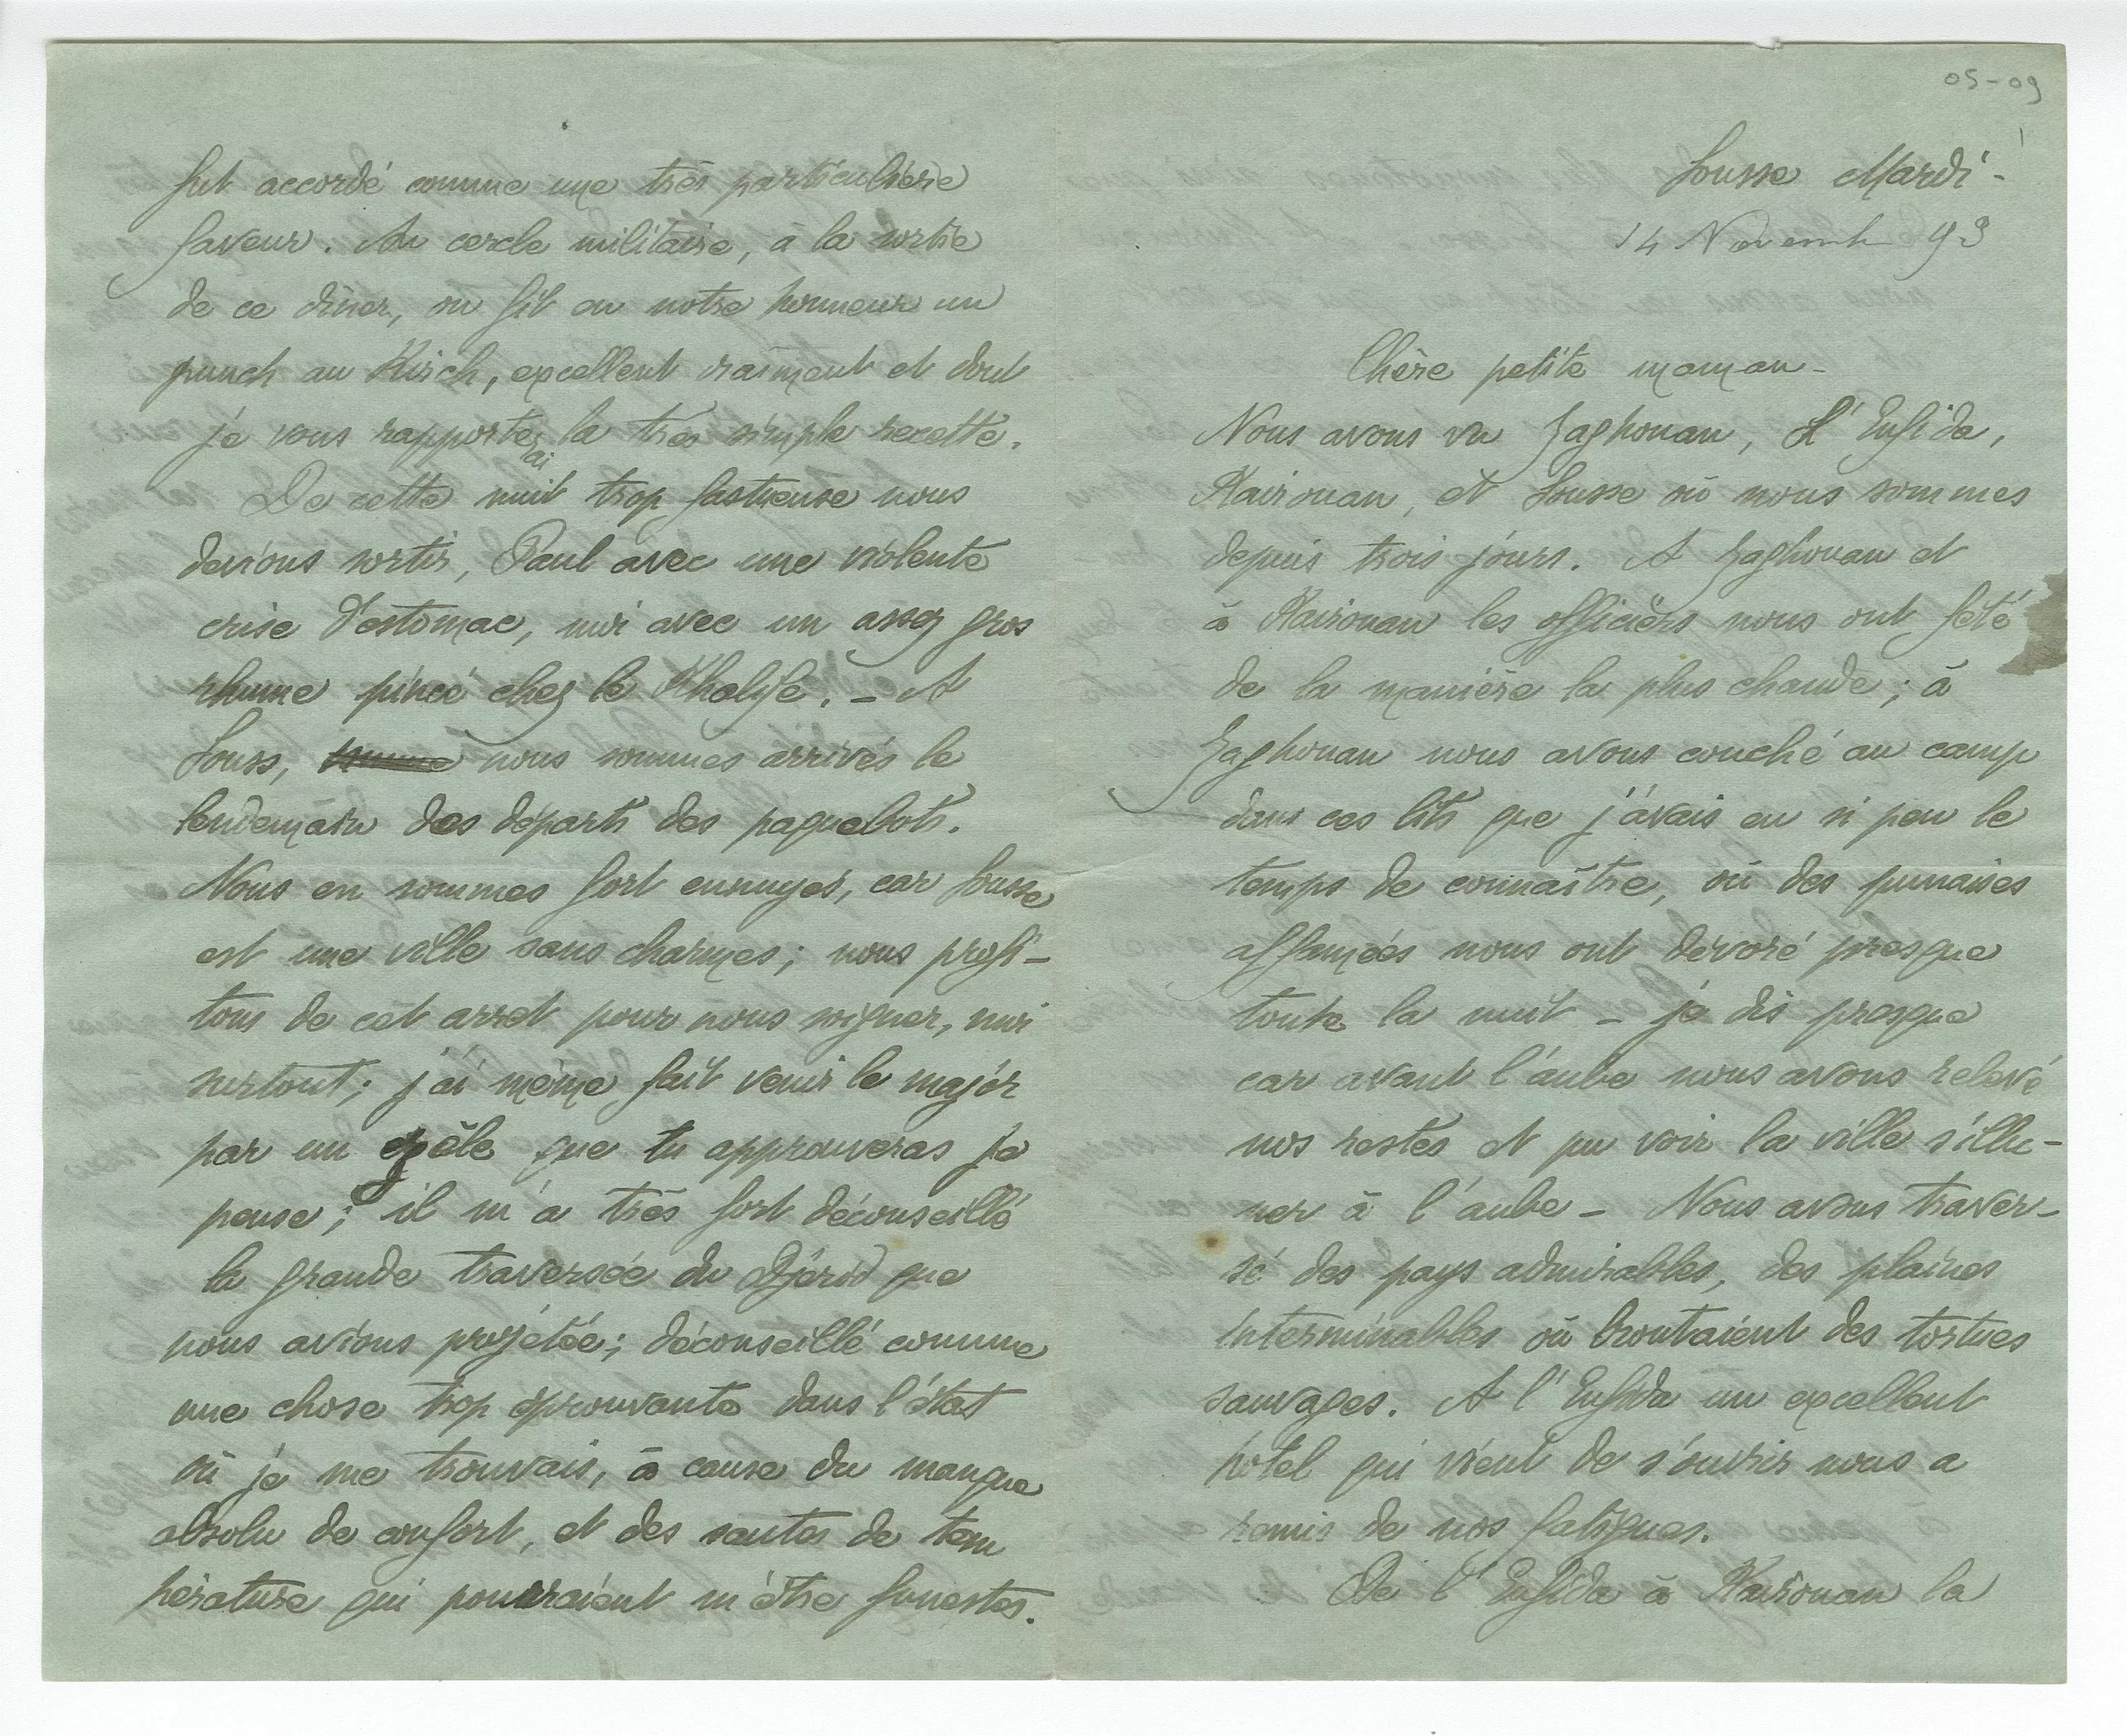 05-09
Sousse Mardi -
14 Novemb 93
Chère petite maman -
Nous avons vu Zaghouan, L'Enfida,
Kairouan, et Sousse où nous sommes
depuis trois jours. A Zaghouan et
à Kairouan les officiers nous ont fêté
de la manière la plus chaude ; à
Zaghouan nous avons couché au camp
dans ces lits que j'avais eu si peu le
temps de connaître, où des punaises
affamées nous ont dévoré presque
toute la nuit - je dis presque
car avant l'aube nous avons relevé
nos restes et pu voir la ville s'illu-
ner à l'aube - Nous avons traver-
sé des pays admirables, des plaines
interminables où broutaient des tortues
sauvages. A l'Enfida un excellent
hotel qui vient de s'ouvrir nous a
remis de nos fatigues.
De l'Enfida à Kairouan la
fut accordé comme une très particulière
faveur. Au cercle militaire, à la sortie
de ce dîner, on fit en notre honneur un
punch au Kirsch, excellent vraiment et dont
je vous rapporterai la très simple recette.
De cette nuit trop fastueuse nous
devions sortir, Paul avec une violente
crise d'estomac, moi avec un assez gros
rhume pincé chez le Khalife. - A
Souss, nous sommes arrivés le
lendemain des départs des paquebots.
Nous en sommes fort ennuyés, car Sousse
est une ville sans charmes ; nous profi-
tons de cet arret pour nous soigner, moi
surtout ; j'ai même fait venir le major
par un zèle que tu approuveras je
pense ; il m'a très fort déconseillé
la grande traversée du Djérid que
nous avions projetée ; déconseillé comme
une chose trop éprouvante dans l'état
où je me trouvais, à cause du manque
absolu de confort, et des sautes de tem
pérature qui pourraient m'être funestes.